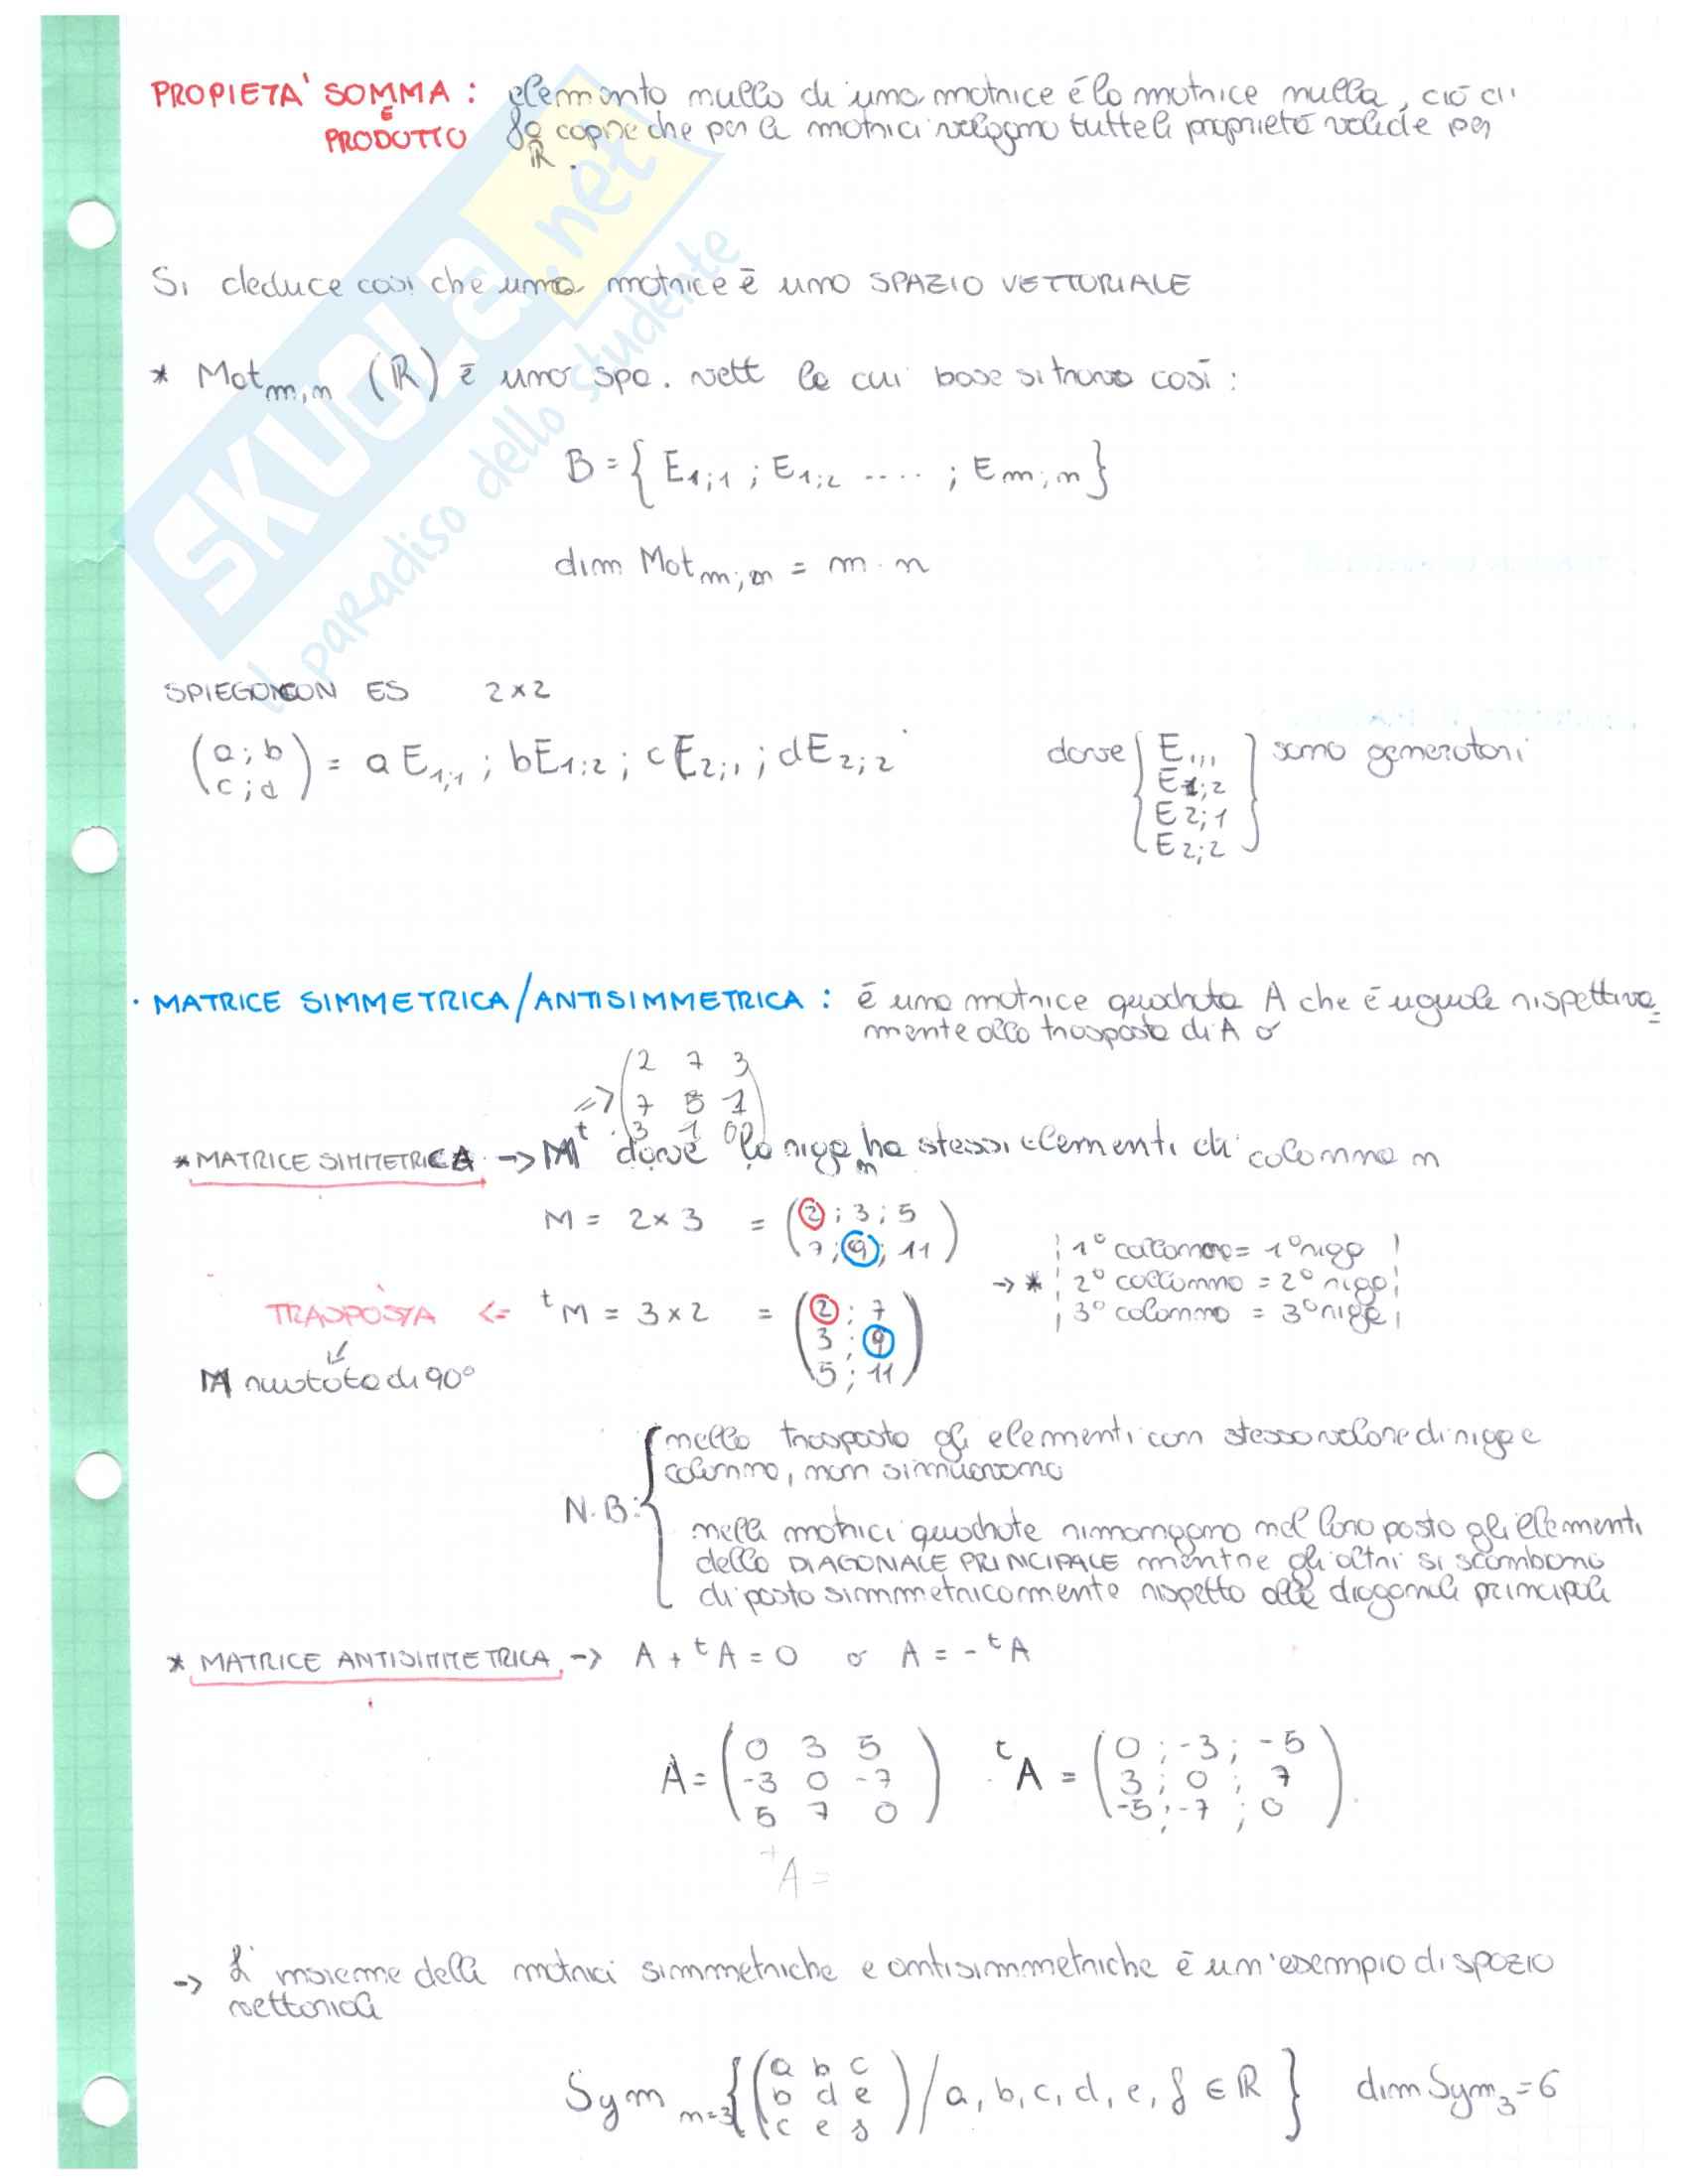 PROPIETA' SOMMA : elemento nullo di una matrice é la matrice nulla, ció ci
E
PRODOTTO fa capire che per le matrici valgono tutte le proprietá valide per
ℝ.
Si deduce cosi che una matrice é uno SPAZIO VETTORIALE
* Mat m,n (ℝ) é uno spa. vett la cui base si trova cosí :
B = { E1;1 ; E1;2 .... ; Em;n }
dim Mat m;n = m · n
SPIEGO CON ES 2×2
(a ; b
c ; d) = a E1;1 ; bE1;2 ; cE2;1 ; dE2;2 dove { E1;1
E1;2
E2;1
E2;2 } sono generatori
· MATRICE SIMMETRICA/ANTISIMMETRICA : é una matrice quadrata A che é uguale rispettiva=
mente alla trasposta di A o
=> (2 7 3
7 5 1
3 1 0)
* MATRICE SIMMETRICA -> M^t dove la riga n ha stessi elementi di colonna n
M = 2×3 = (2 ; 3 ; 5
7 ; 9 ; 11)
-> * | 1° colonna = 1° riga |
| 2° collonna = 2° riga |
| 3° colonna = 3° riga |
TRASPOSTA <= ^tM = 3×2 = (2 ; 7
3 ; 9
5 ; 11)
M ruotata di 90°
N.B: { nella trasposta gli elementi con stesso valore di riga e
colonna, non si muovono
nelle matrici quadrate rimangono nel loro posto gli elementi
della DIAGONALE PRINCIPALE mentre gli altri si scambiano
di posto simmetricamente rispetto alle diagonali principali
* MATRICE ANTISIMMETRICA -> A + ^tA = 0 o A = -^tA
A = (0 3 5
-3 0 -7
5 7 0) ^tA = (0 ; -3 ; -5
3 ; 0 ; 7
-5 ; -7 ; 0)
A =
-> L'insieme delle matrici simmetriche e antisimmetriche é un'esempio di spazio
vettoriale
Sym n=3 { (a b c
b d e
c e f) / a, b, c, d, e, f ∈ ℝ } dim Sym3 = 6
SKUOLa.net
il paradiso dello studente